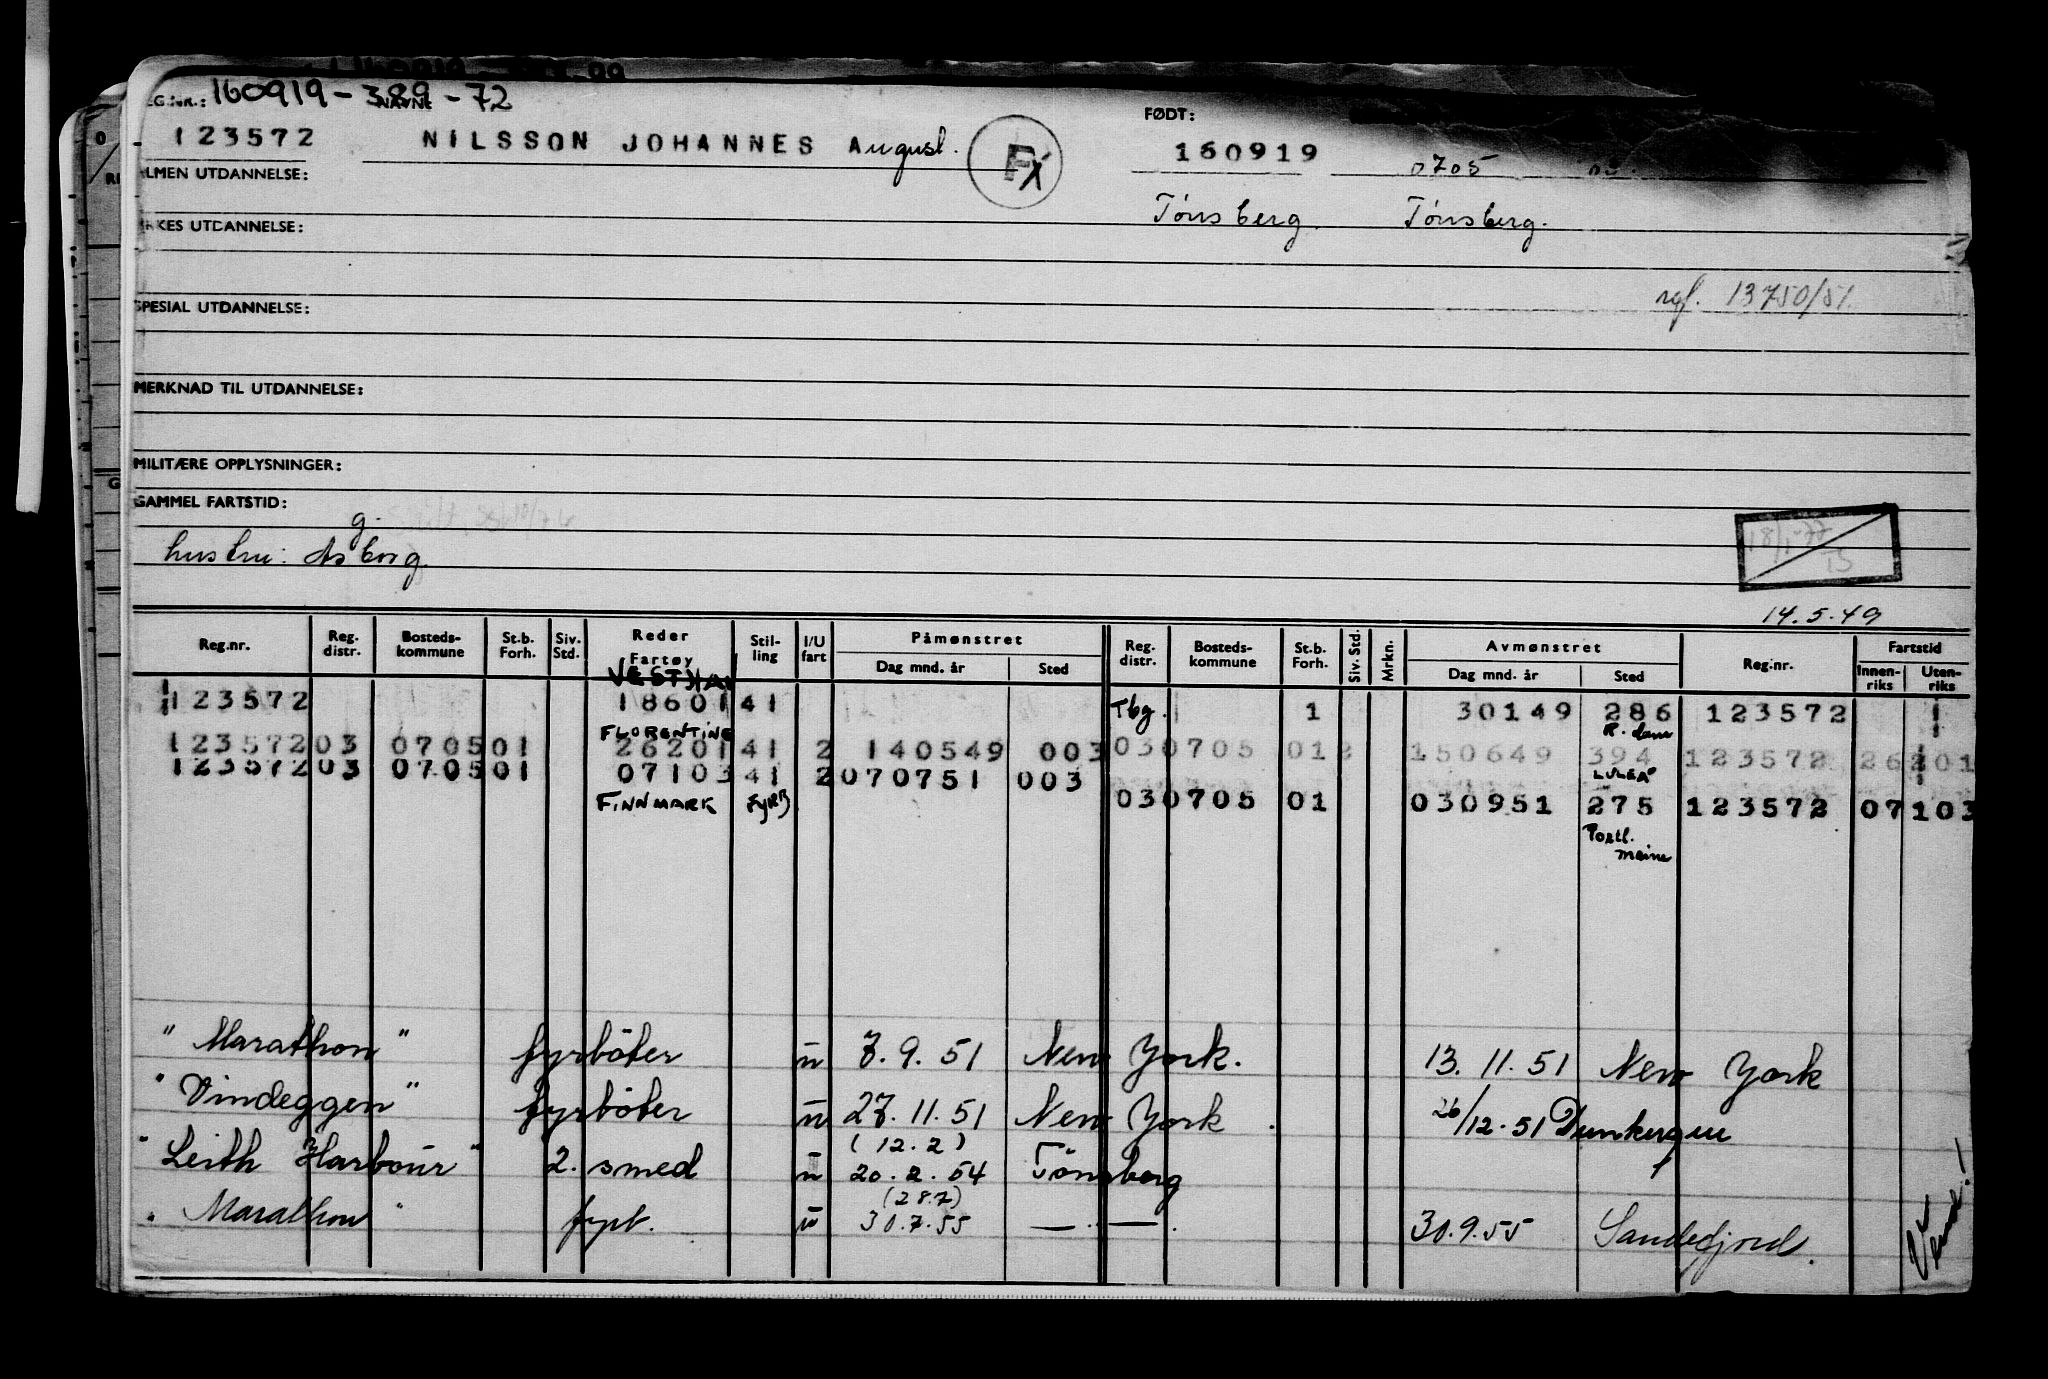 160919-389-72
REG.NR.: NAVN: FØDT:
123572 NILSSON JOHANNES August. 160919 0705
ALMEN UTDANNELSE:
Tönsberg. Tönsberg.
YRKES UTDANNELSE:
ref. 13750/51.
SPESIAL UTDANNELSE:
MERKNAD TIL UTDANNELSE:
MILITÆRE OPPLYSNINGER:
GAMMEL FARTSTID:
g.
hustru: Asborg
14.5.49
Reg.nr. Reg. distr. Bosteds-kommune St.b. Forh. Siv. Std. Reder Fartøy Stil-ling I/U fart Påmønstret Dag mnd. år Sted Reg. distr. Bosteds-kommune St.b. Forh. Siv. Std. Mrkn. Avmønstret Dag mnd. år Sted Reg.nr. Fartstid Innen-riks Uten-riks
123572 18601 41 Tbg. 1 30149 286 123572
FLORENTINE R.dam
123572 03 0705 01 26201 41 2 140549 003 03 0705 01 2 150649 394 123572 26201
LULEÅ
123572 03 0705 01 07103 41 2 070751 003
FINNMARK FyRB 03 0705 01 030951 275 123572 07103
Portl. Maine
"Marathon" fyrböter u 7.9.51 New York. 13.11.51 New York
"Vindeggen" fyrböter u 27.11.51 New York. 26/12.51 Dunkerque
(12.2)
"Leith Harbour" 2. smed u 20.2.54 Tönsberg
(28.7)
"Marathon" fyrb. u 30.7.55 — " — . 30.9.55 Sandefjord.